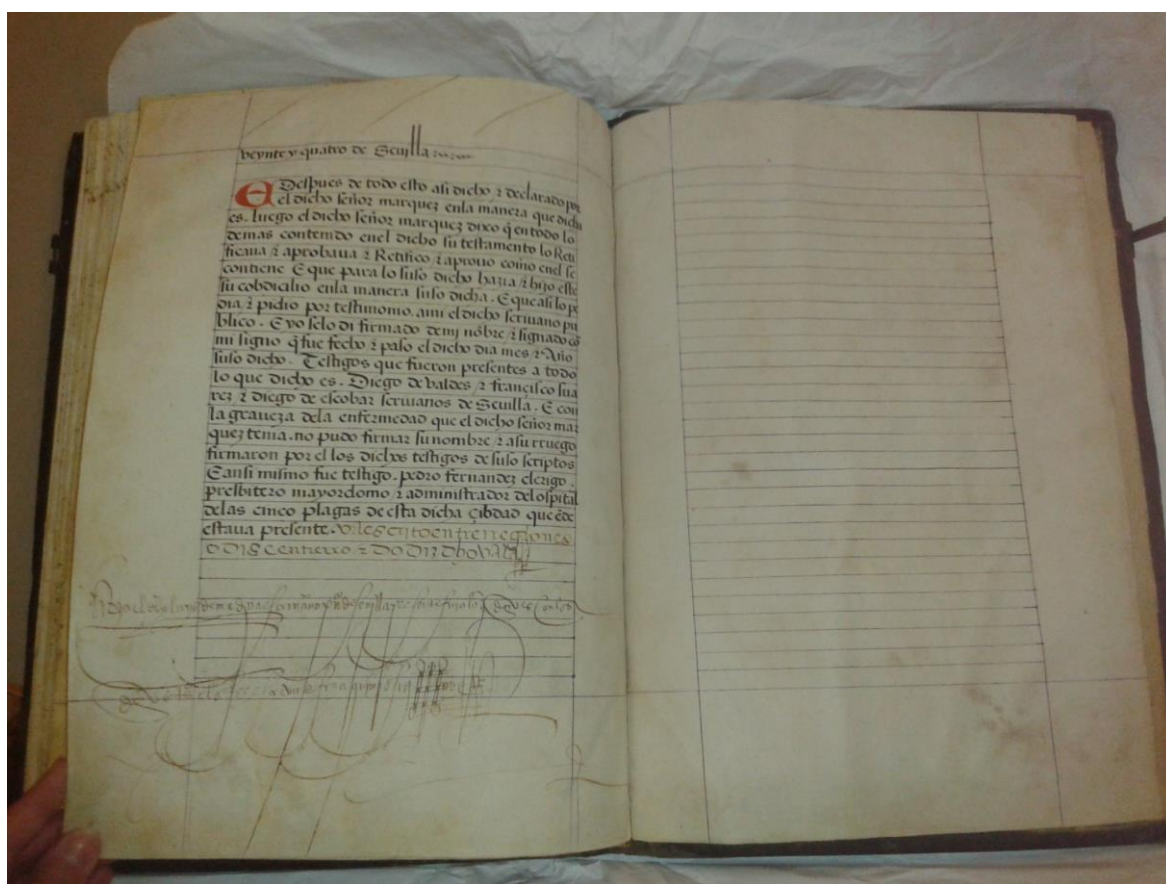 veynte y quatro de Seuilla
E Despues de todo esto asi dicho ⁊ declarado por
el dicho señor marquez enla manera que dicho
es. luego el dicho señor marquez dixo q̃ en todo lo
demas contenido enel dicho su testamento lo Reti
ficaua ⁊ aprobaua ⁊ Retifico ⁊ aprouo como enel se
contiene E que para lo suso dicho hazia ⁊ hizo este
su cobdicilio enla manera suso dicha. E que asi lo pe
dia ⁊ pidio por testimonio. ami el dicho scriuano pu
blico. E yo selo di firmado demj nõbre ⁊ signado cõ
mi signo q̃ fue fecho ⁊ paso el dicho dia mes ⁊ Año
suso dicho. Testigos que fueron presentes a todo
lo que dicho es. Diego de valdes ⁊ françisco sua
rez ⁊ diego de escobar scriuanos de Seuilla. E con
la graueza dela enfermedad que el dicho señor mar
quez tenia. no pudo firmar su nombre ⁊ a su rruego
firmaron por el los dichos testigos de suso scriptos
E ansi mismo fue testigo. pedro fernandez clerigo.
presbitero mayordomo ⁊ administrador del ospital
delas cinco plagas de esta dicha çibdad que ẽde
estaua presente. va escrito entre rreglones
o diz entierro ⁊ do diz dho vala